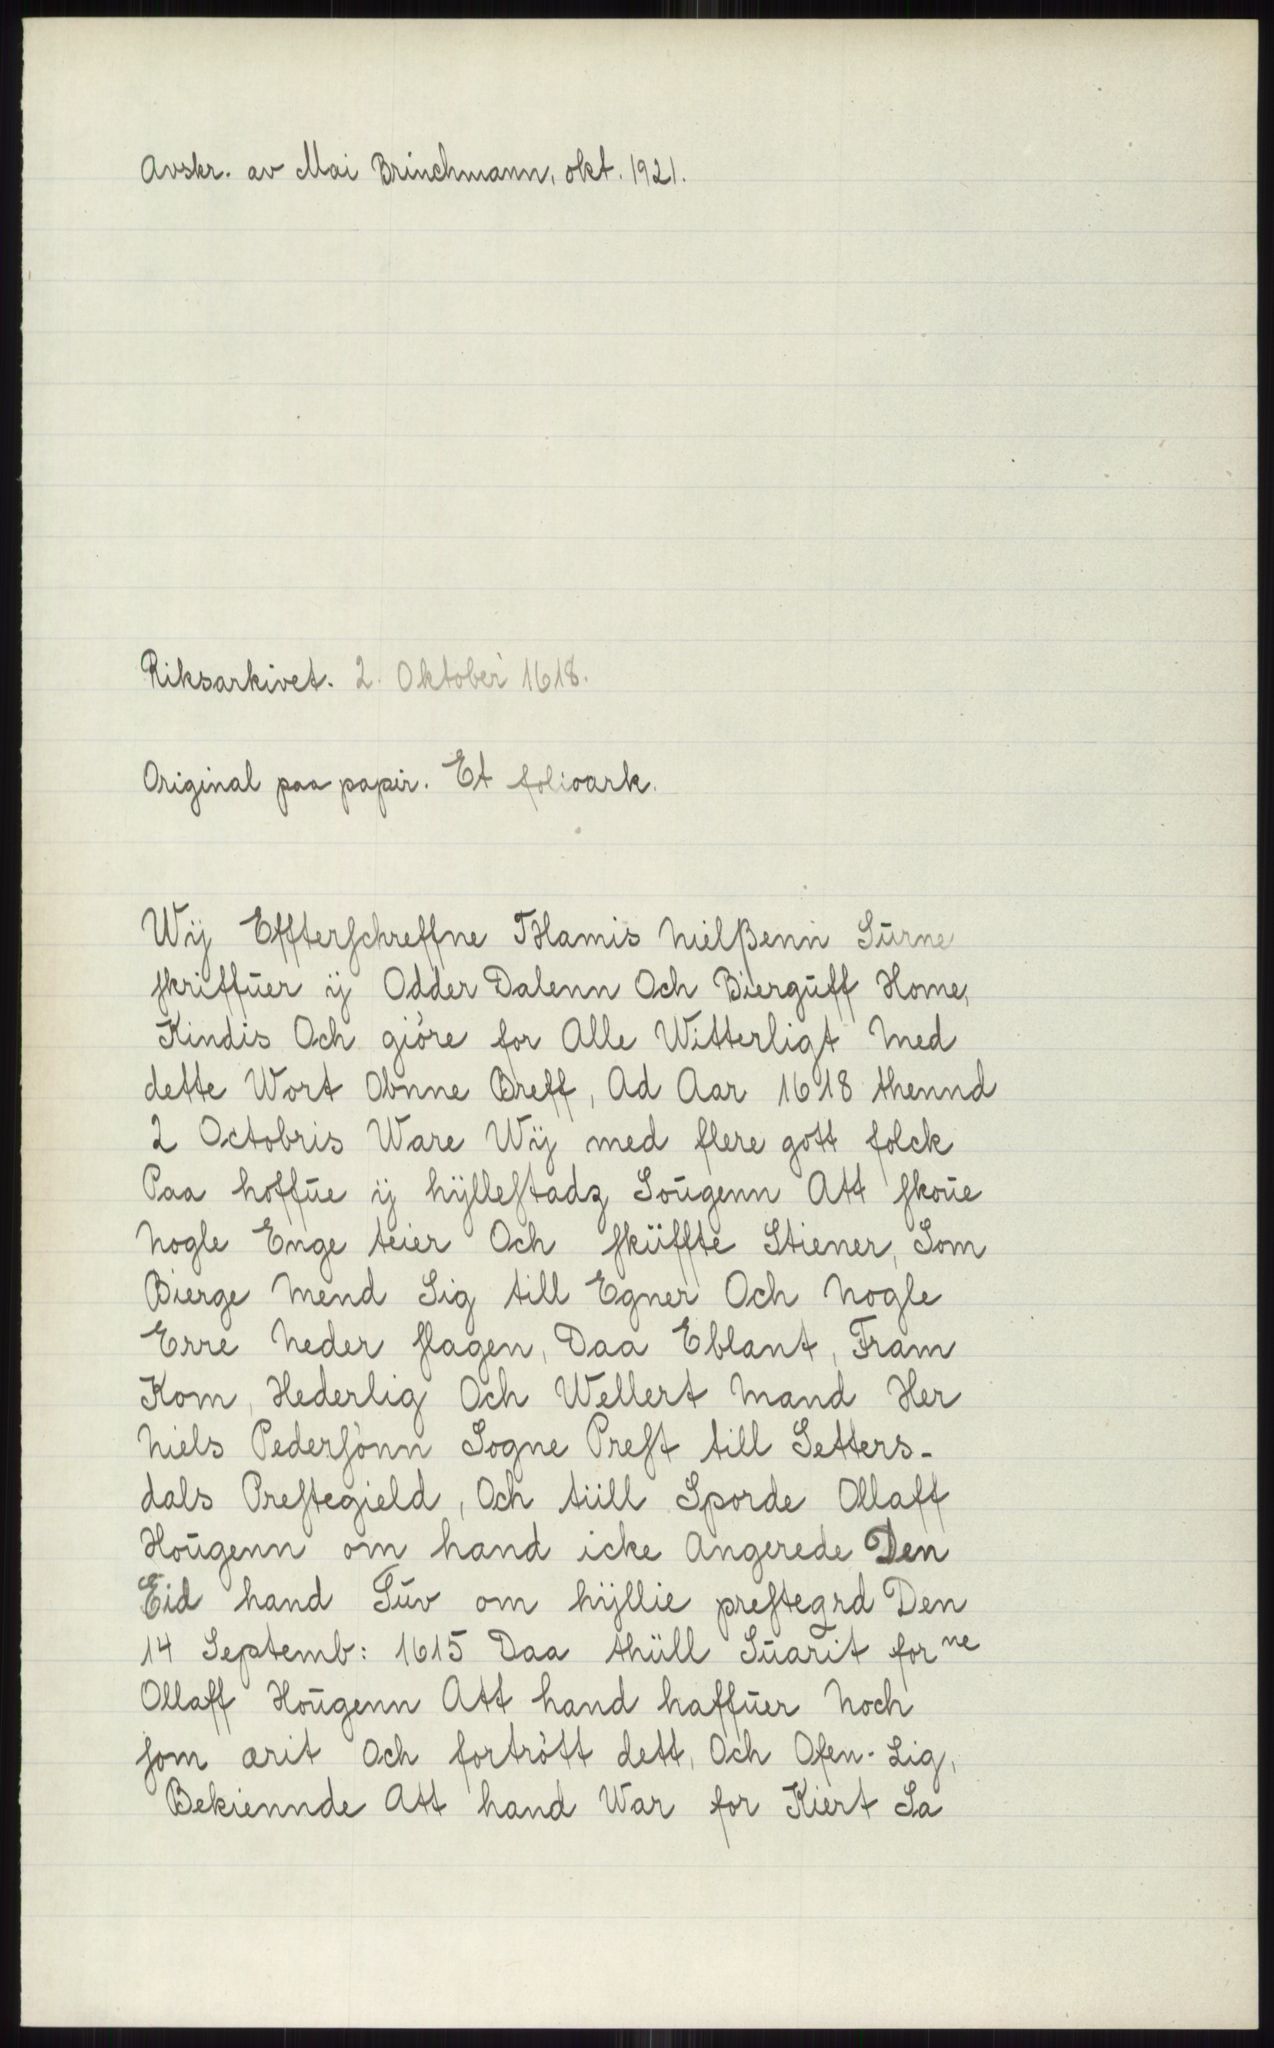 Avskr. av Mai Brinchmann, okt. 1921.
Riksarkivet. 2. Oktober 1618.
Original paa papir. Et folioark.
Wij Effterschreffne THamis Nielßenn Surne
skriffuer ij Odder Dalenn Och Bierguff Home,
Kindis Och giöre for Alle Witterligt Med
dette Wort Obnne Breff, Ad Aar 1618 thennd
2 Octobris Ware Wij med flere gott folck
Paa hoffue ij hyllestadz Sougenn Att skoue
Nogle Enge teier Och skiffte Stiener, Som
Bierge Mend Sig till Egner Och Nogle
Erre Neder slagen, Daa Eblant, Fram
Kom, Hederlig Och Wellert Mand Her
Niels Pedersönn Sogne Prest till Setters-
dals Prestegield, Och tiill Sporde Ollaff
Hougenn om hand icke Angerede Den
Eid hand Suv om hyllie prestegrd Den
14 Septemb: 1615 Daa thüll Suarit for ne
Ollaff Hougenn Att hand haffuer Noch
som ærit Och fortrött dett, Och Ofen-Lig,
Bekiennde Att hand War for Kiert Sa